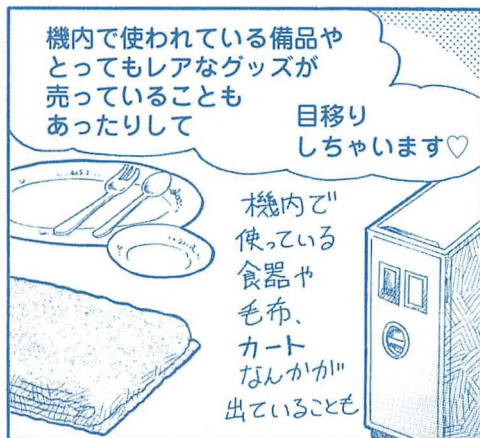 機内で使われている備品や
とってもレアなグッズが
売っていることも
あったりして
目移り
しちゃいます♡
機内で
使っている
食器や
毛布、
カート
なんかが
出ていることも